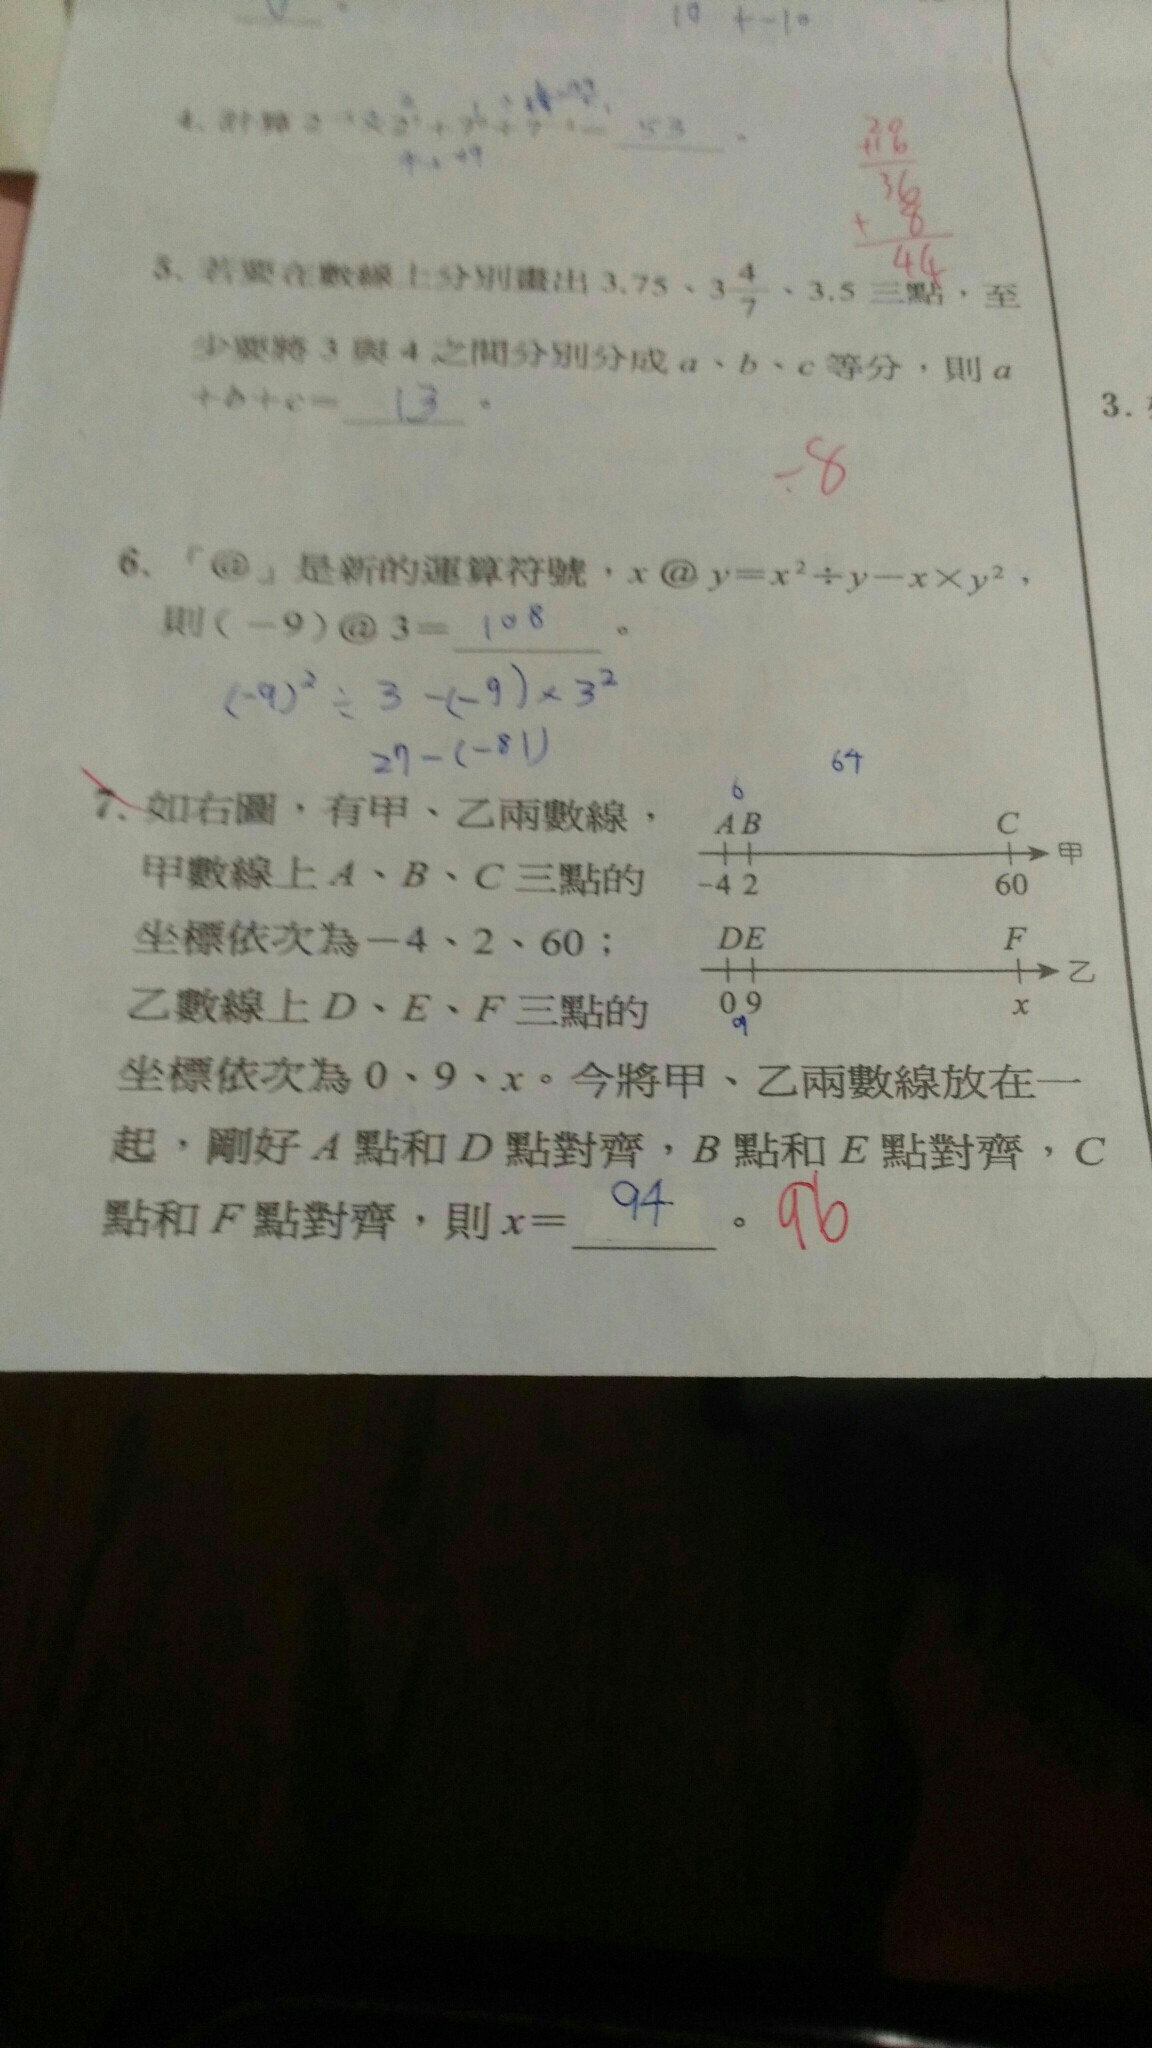 10 + -10
53
28
+16
36
+ 8
44
5. 若要在數線上分別畫出 3.75、3 4/7、3.5 三點，至
少要將 3 與 4 之間分別分成 a、b、c 等分，則 a
+b+c= 13 。
÷8
3.
6. 「@」是新的運算符號，x @ y=x²÷y－x×y²，
則(－9)@ 3= 108 。
(-9)² ÷ 3 -(-9) × 3²
27-(-81)
64
6
7. 如右圖，有甲、乙兩數線，
A B C
甲
甲數線上 A、B、C 三點的
-4 2 60
坐標依次為－4、2、60；
D E F
乙
乙數線上 D、E、F 三點的
0 9 x
9
坐標依次為 0、9、x。今將甲、乙兩數線放在一
起，剛好 A 點和 D 點對齊，B 點和 E 點對齊，C
點和 F 點對齊，則 x= 94 。 96